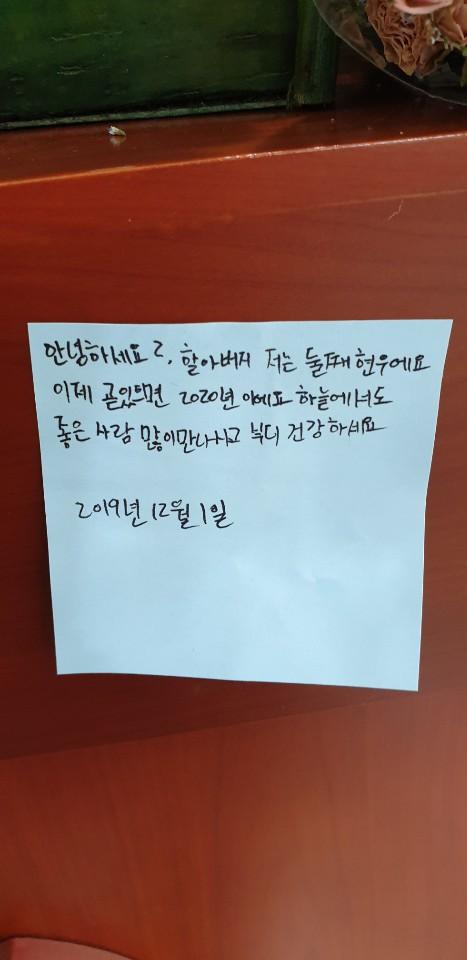 안녕하세요 2, 할아버지 저는 둘째 현우에요
이제 곧있으면 2020년 이에요 하늘에서도
좋은 사람 많이만나시고 부디 건강하세요
2019년 12월 1일